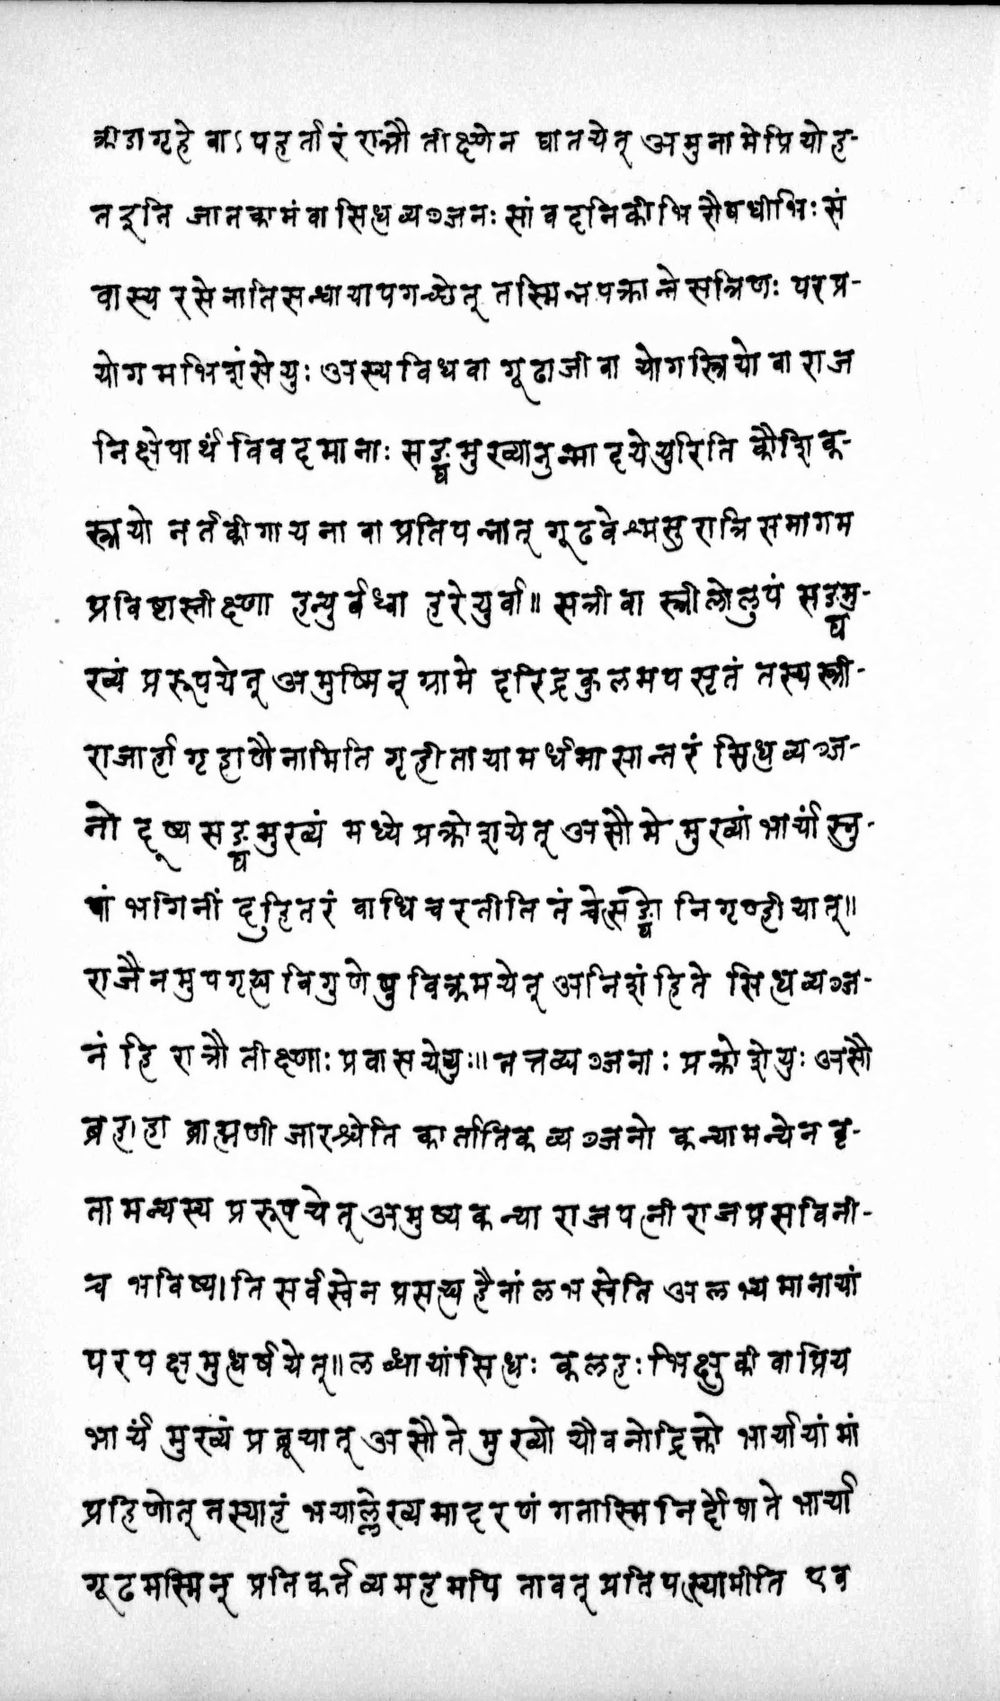 क्रीडागृहे वाऽपहर्तारं रात्रौ तीक्ष्णेन घातयेत् अमुना मे प्रियो ह-
त इति जातकामं वा सिद्धव्यञ्जनः सांवदनिकीभिरौषधीभिः सं
वास्य रसेनातिसन्धायापगच्छेत् तस्मिन्नपक्रान्ते सत्रिणः परप्र-
योगमभिशंसेयुः अस्य विधवा गूढाजीवा योगस्त्रियो वा राज
निक्षेपार्थं विवदमानाः सङ्घमुख्यानुन्मादयेयुरिति कौशिक-
स्त्रयो नर्तकीगायना वा प्रतिपन्नात् गूढवेश्मसु रात्रिसमागम
प्रविष्टास्तीक्ष्णा हन्युर्बध्वा हरेयुर्वा॥ सत्री वा स्त्रीलोलुपं सङ्घमु-
ख्यं प्ररूपयेत् अमुष्मिन् ग्रामे दरिद्रकुलमपसृतं तस्य स्त्री-
राजार्हा गृहाणैनामिति गृहीतायामर्धमासान्तरं सिद्धव्यञ्ज-
नो दूष्यसङ्घमुख्यं मध्ये प्रक्रोशयेत् असौ मे मुख्यां भार्यां स्नु-
षां भगिनीं दुहितरं वाधिचरतीति तं चेत्सङ्घो निगृण्हीयात्॥
राजैनमुपगृह्य विगुणेषु विक्रमयेत् अनिशंहिते सिद्धव्यञ्ज-
नं हि रात्रौ तीक्ष्णाः प्रवासयेयुः॥ नत्तव्यञ्जनाः प्रक्रोशेयुः असौ
ब्रह्महा ब्राह्मणीजारश्चेति कार्तान्तिकव्यञ्जनो कन्यामन्येन वृ-
तामन्यस्य प्ररूपयेत् अमुष्य कन्या राजपत्नी राजप्रसविनी-
च भविष्याति सर्वस्वेन प्रसह्य हैनां लभस्वेति अलभ्यमानायां
परपक्षमुद्धर्षयेत्॥ लब्धायां सिद्धः कलहः भिक्षुकी वा प्रिय
भार्यं मुख्यं प्रब्रूयात् असौ ते मुख्यो यौवनोद्रिक्तो भार्यायां मां
प्रहिणोत् तस्याहं भयाल्लेख्यमादरणं गतास्मि निर्द्दोषा ते भार्या
गूढमस्मिन् प्रतिकर्तव्यमहमपि तावत् प्रतिपत्स्यामीति एव